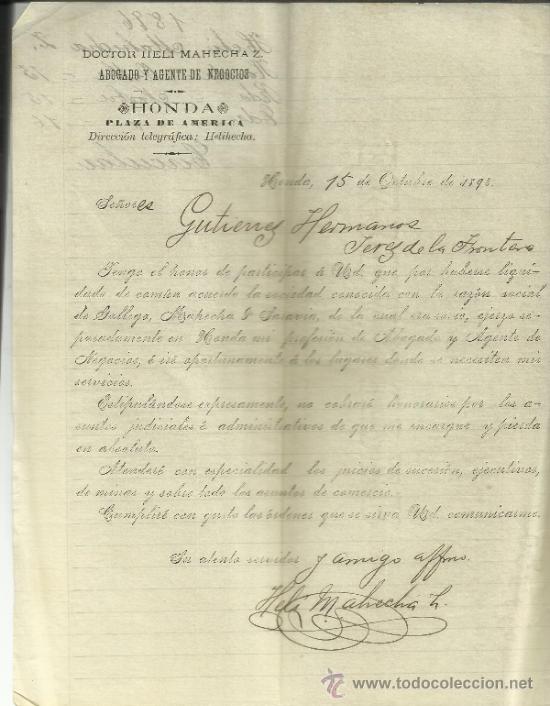 1896
DOCTOR HELI MAHECHA Z.
ABOGADO Y AGENTE DE NEGOCIOS
HONDA
PLAZA DE AMERICA
Dirección telegráfica: Helihecha.
Circular
Honda, 15 de Octubre de 1896
Señores
Gutierrez Hermanos
Jerez de la Frontera
Tengo el honor de participar á Ud. que por haberse liqui-
dado de común acuerdo la sociedad conocida con la razón social
de Gallego, Mahecha & Saravia, de la cual era socio, ejerzo se-
paradamente en Honda mi profesión de Abogado y Agente de
Negocios, é iré oportunamente á los lugares donde se necesiten mis
servicios.
Estipulándose expresamente, no cobraré honorarios por los a-
suntos judiciales ó administrativos de que me encargue y pierda
en absoluto.
Atenderé con especialidad los juicios de sucesión, ejecutivos,
de minas y sobre todo los asuntos de comercio.
Cumpliré con gusto las órdenes que se sirva Ud. comunicarme.
Su atento servidor y amigo affmo.
Heli Mahecha Z.
todocoleccion
www.todocoleccion.net